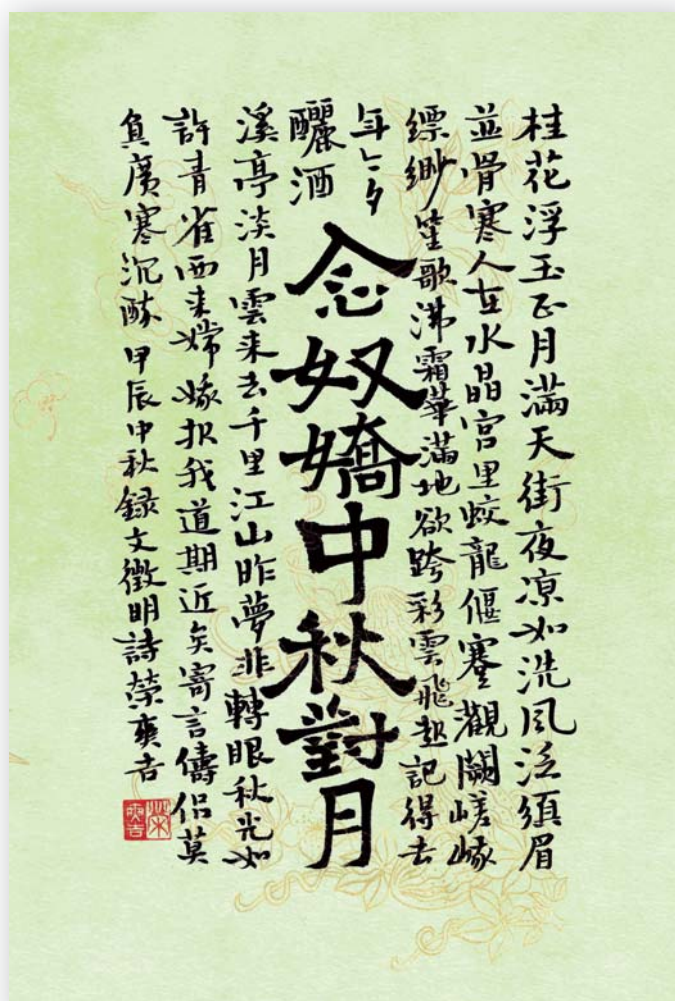 桂花浮玉正月滿天街夜凉如洗風泛須眉
並骨寒人在水晶宮里蛟龍偃蹇觀闕嵯峨
縹緲笙歌沸霜華滿地欲跨彩雲飛起記得去
年今夕
釃酒
念奴嬌中秋對月
溪亭淡月雲來去千里江山昨夢非轉眼秋光如
許青雀西来嫦娥报我道期近矣寄言儔侣莫
負廣寒沉醉 甲辰中秋録文徵明詩榮爽吉